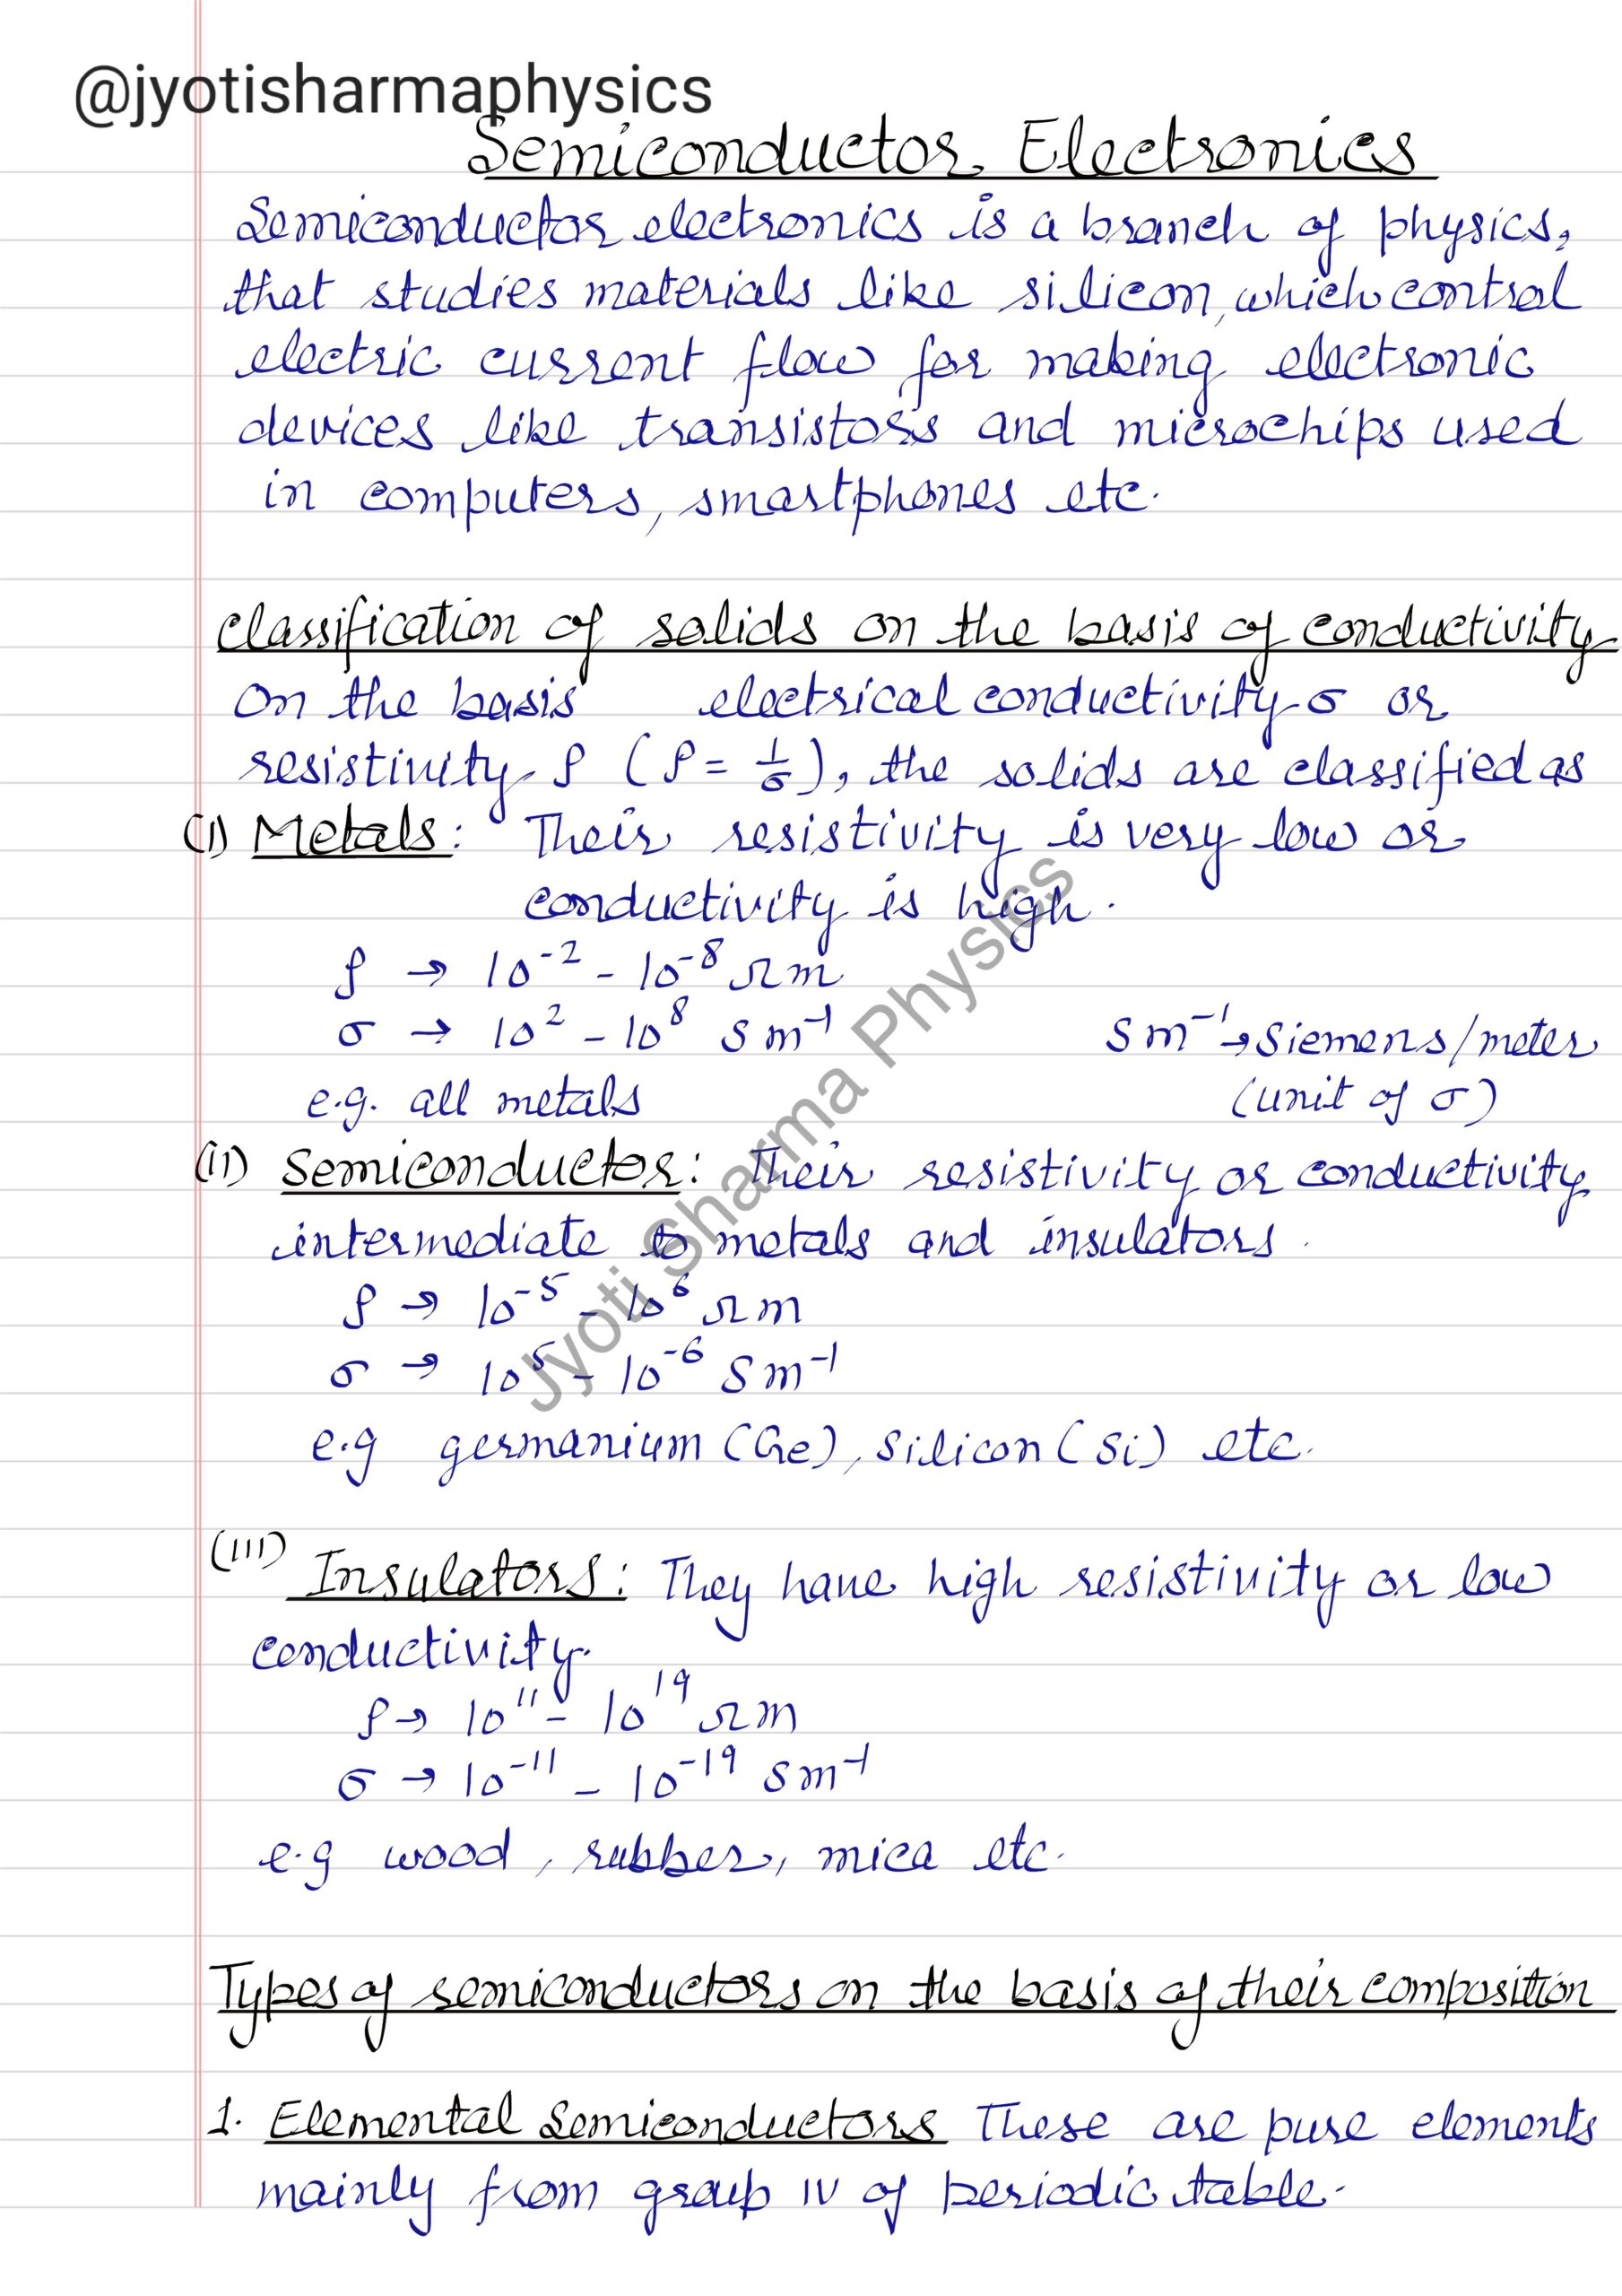 @jyotisharmaphysics
Semiconductor Electronics
Semiconductor electronics is a branch of physics,
that studies materials like silicon, which control
electric current flow for making electronic
devices like transistors and microchips used
in computers, smartphones etc.
Classification of solids on the basis of conductivity
On the basis electrical conductivity σ or
resistivity ρ (ρ = 1/σ), the solids are classified as
(I) Metals: Their resistivity is very low or
conductivity is high.
ρ → 10⁻² - 10⁻⁸ Ωm
σ → 10² - 10⁸ S m⁻¹ S m⁻¹ → Siemens/meter
e.g. all metals (unit of σ)
(II) Semiconductor: Their resistivity or conductivity
intermediate to metals and insulators.
ρ → 10⁻⁵ - 10⁶ Ωm
σ → 10⁵ - 10⁻⁶ S m⁻¹
e.g germanium (Ge), Silicon (Si) etc.
(III) Insulators: They have high resistivity or low
conductivity.
ρ → 10¹¹ - 10¹⁹ Ωm
σ → 10⁻¹¹ - 10⁻¹⁹ S m⁻¹
e.g wood, rubber, mica etc.
Types of semiconductors on the basis of their composition
1. Elemental Semiconductors These are pure elements
mainly from group IV of periodic table.
Jyoti Sharma Physics